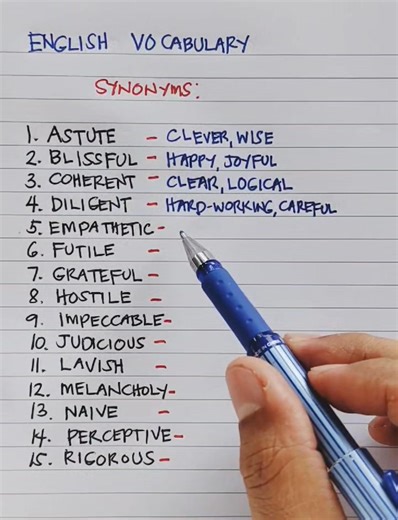 ENGLISH VOCABULARY
SYNONYMS:
1. ASTUTE - CLEVER, WISE
2. BLISSFUL - HAPPY, JOYFUL
3. COHERENT - CLEAR, LOGICAL
4. DILIGENT - HARD-WORKING, CAREFUL
5. EMPATHETIC -
6. FUTILE -
7. GRATEFUL -
8. HOSTILE -
9. IMPECCABLE -
10. JUDICIOUS -
11. LAVISH -
12. MELANCHOLY -
13. NAIVE -
14. PERCEPTIVE -
15. RIGOROUS -